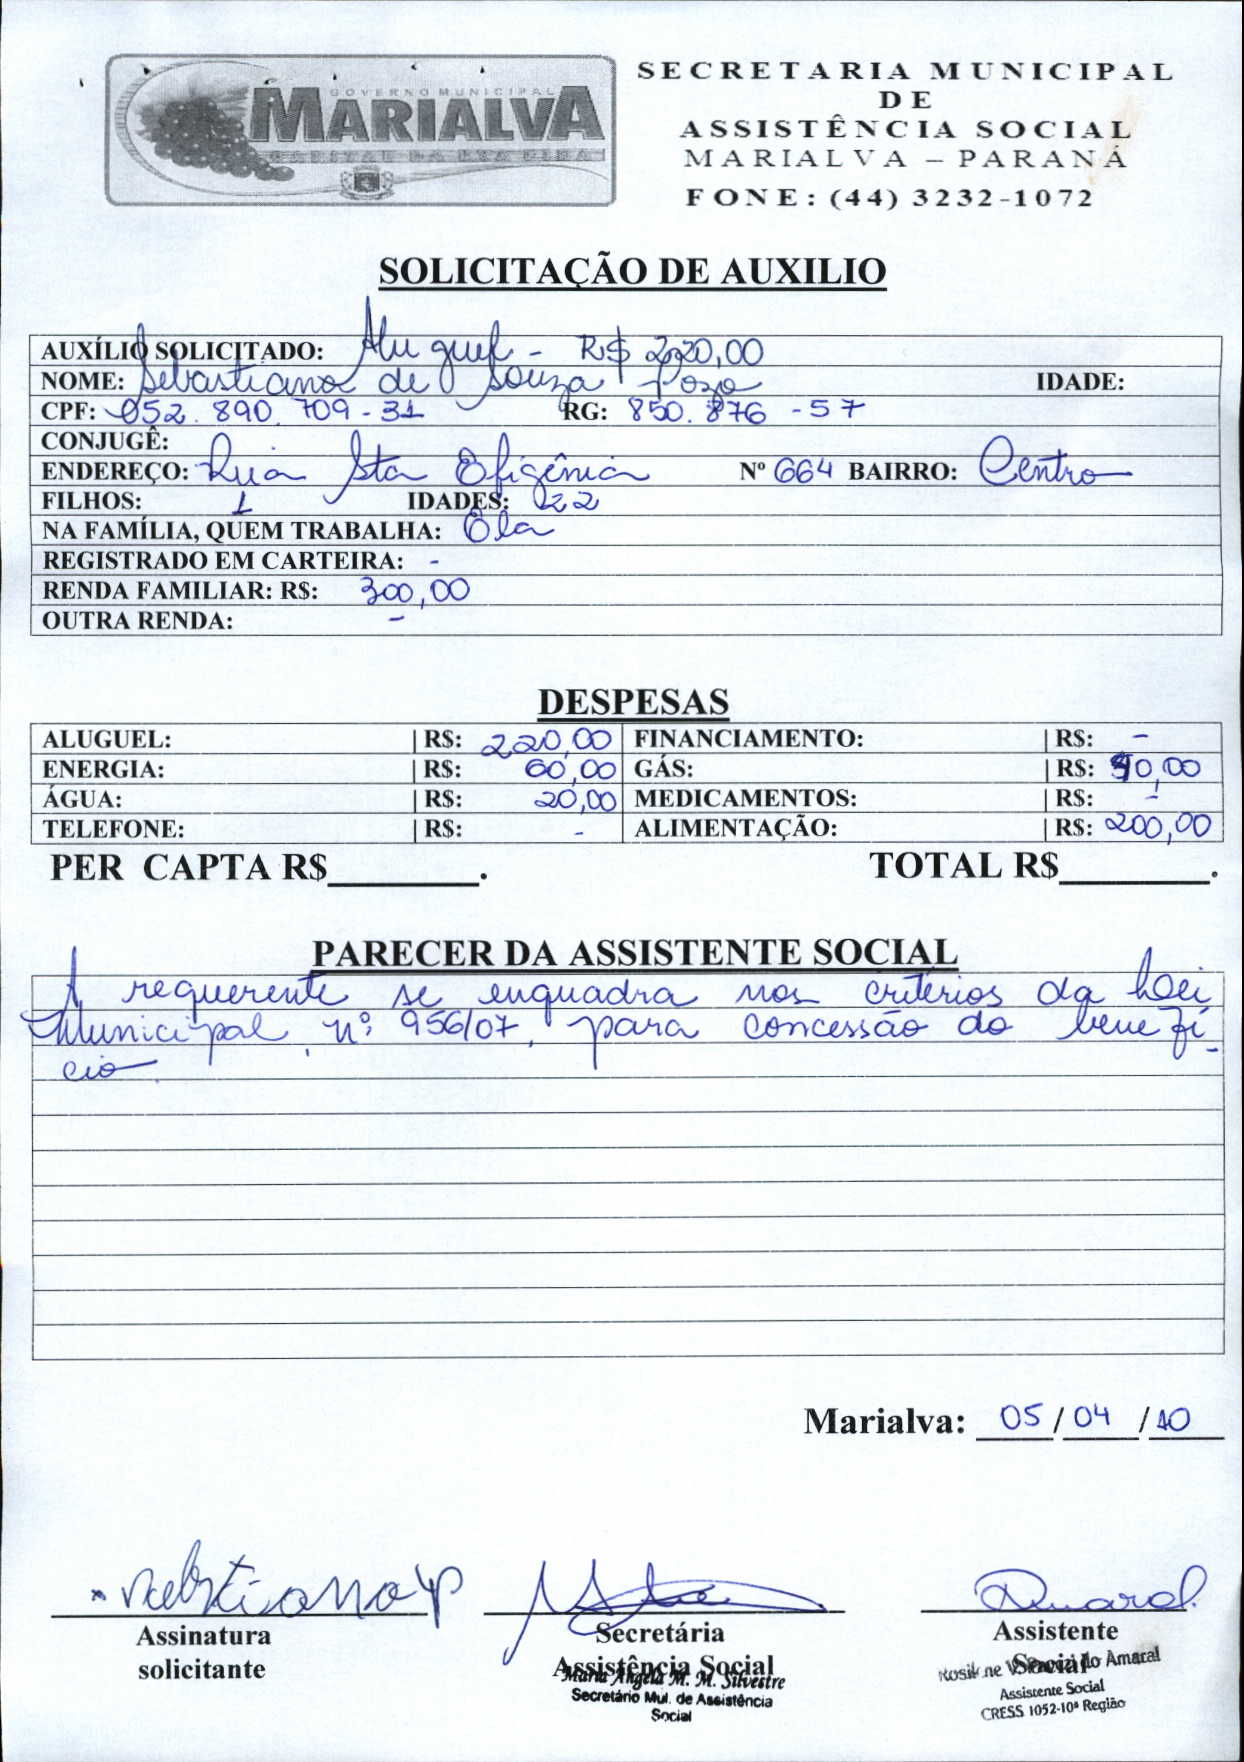 GOVERNO MUNICIPAL
MARIALVA
CAPITAL DA UVA FINA
SECRETARIA MUNICIPAL
DE
ASSISTÊNCIA SOCIAL
MARIALVA – PARANÁ
FONE: (44) 3232-1072
SOLICITAÇÃO DE AUXILIO
AUXÍLIO SOLICITADO: Aluguel - R$ 220,00
NOME: Sebastiana de Souza Pozo IDADE:
CPF: 052.890.709-31 RG: 850.876-57
CONJUGÊ:
ENDEREÇO: Rua Sta Efigênia Nº 664 BAIRRO: Centro
FILHOS: 1 IDADES: 22
NA FAMÍLIA, QUEM TRABALHA: Ela
REGISTRADO EM CARTEIRA: -
RENDA FAMILIAR: R$: 300,00
OUTRA RENDA: -
DESPESAS
ALUGUEL: | R$: 220,00 FINANCIAMENTO: | R$: -
ENERGIA: | R$: 60,00 GÁS: | R$: 40,00
ÁGUA: | R$: 20,00 MEDICAMENTOS: | R$: -
TELEFONE: | R$: - ALIMENTAÇÃO: | R$: 200,00
PER CAPTA R$________. TOTAL R$________.
PARECER DA ASSISTENTE SOCIAL
A requerente se enquadra nos critérios da Lei
Municipal nº 956/07, para concessão do benefí-
cio.
Marialva: 05/04/10
Assinatura solicitante
Secretária Assistência Social
Maria Angela M. M. Silvestre
Secretário Mul. de Assistência
Social
Assistente Social
do Amaral
Assistente Social
CRESS 1052-10ª Região